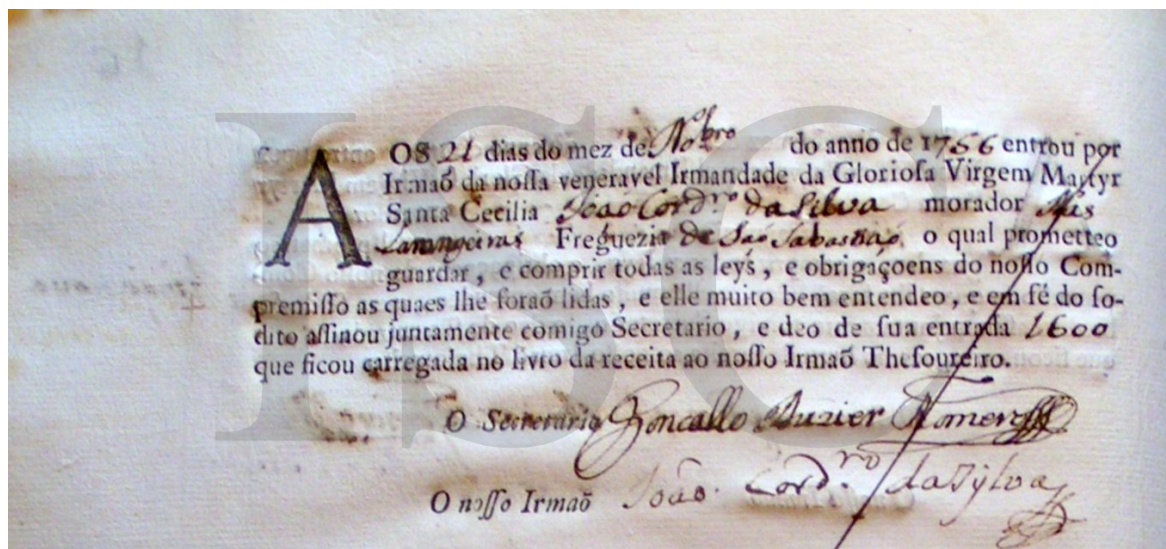 AOS 21 dias do mez de No.bro do anno de 1756 entrou por
Irmaõ da nossa veneravel Irmandade da Gloriosa Virgem Martyr
Santa Cecilia João Cord.ro da Silva morador Nas
Larangeiras Freguezia de São Sabastiaõ, o qual prometteo
guardar, e comprir todas as leys, e obrigaçoens do nosso Com-
premisso as quaes lhe foraõ lidas, e elle muito bem entendeo, e em fé do so-
dito assinou juntamente comigo Secretario, e deo de sua entrada 1600
que ficou carregada no livro da receita ao nosso Irmaõ Thesoureiro.
O Secretario Gonçallo Auzier Romero
O nosso Irmaõ João Cord.ro da Sylva
ISC